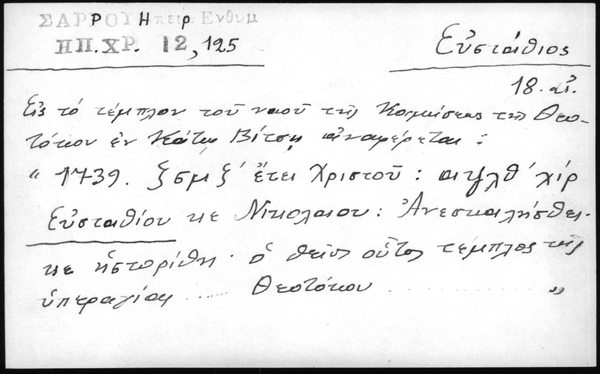 ΣΑΡΡΟΥ Ηπειρ. Ενθυμ
ΗΠ.ΧΡ. 12, 125
Εὐστάθιος
18. αἰ.
Εἰς τό τέμπλον τοῦ ναοῦ τῆς Κοιμήσεως τῆς Θεο-
τόκου ἐν Κάτω Βίτσῃ ἀναφέρεται:
“ 1739. ζσμζ΄ ἔτει Χριστοῦ: αψλθ΄ χίρ
Εὐσταθίου κε Νικολαου: Ἀνεσκαλήσθει-
κε ἡστορίθη. ὁ θεῖος οὗτος τέμπλος τῆς
ὑπεραγίας ..... Θεοτόκου .............. ”